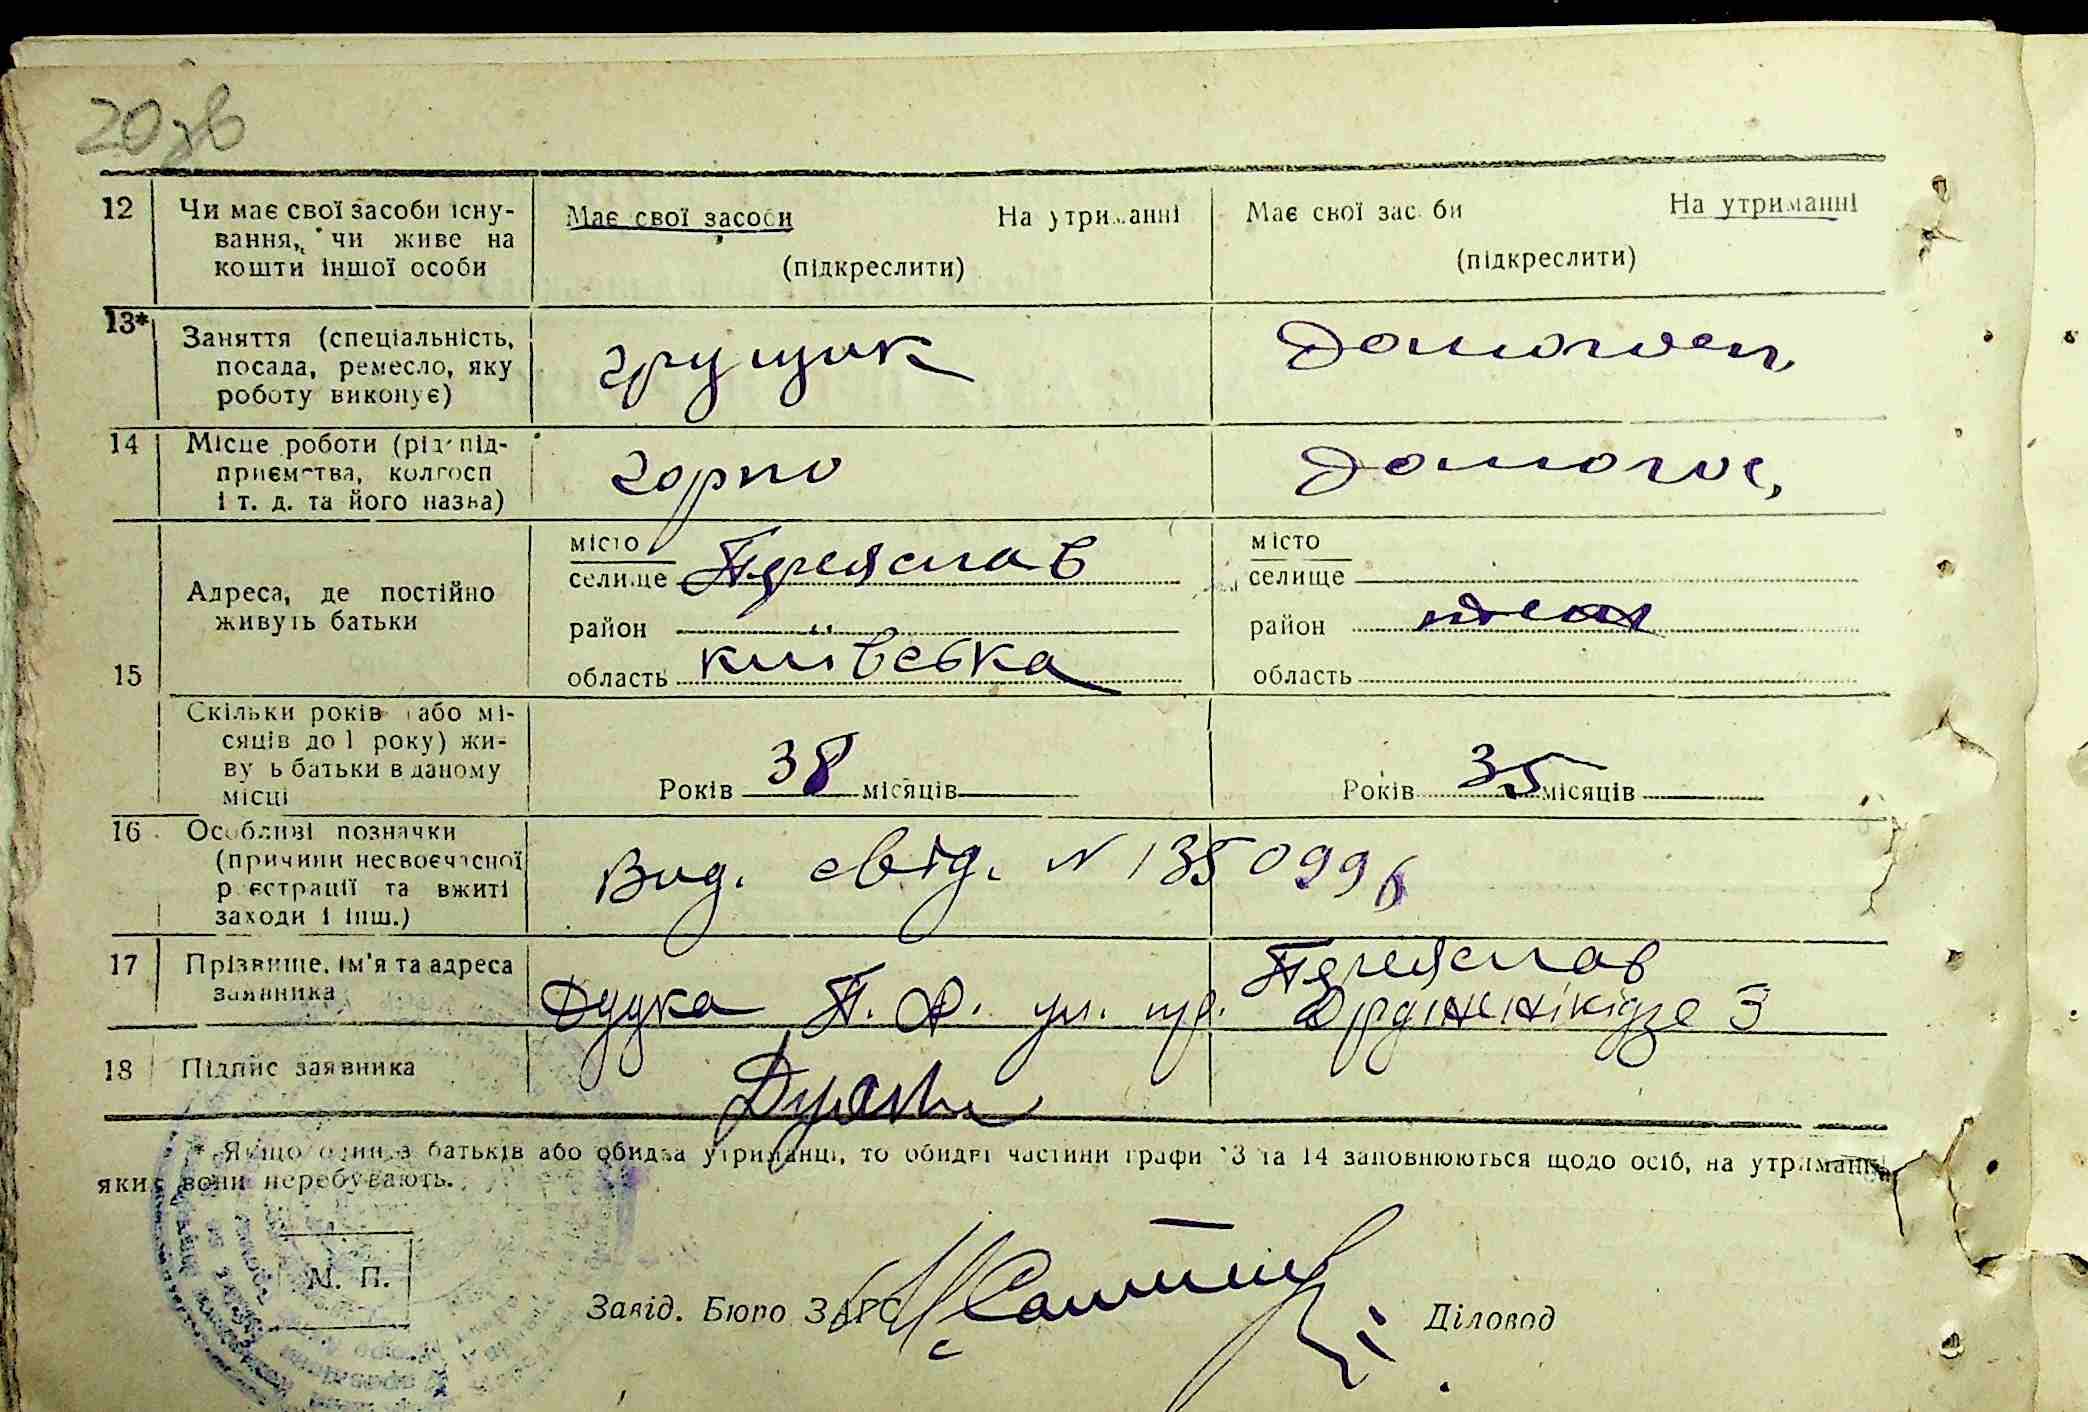 20 зв
12 Чи має свої засоби існування, чи живе на кошти іншої особи
Має свої засоби На утриманні
(підкреслити)
Має свої засоби На утриманні
(підкреслити)
13* Заняття (спеціальність, посада, ремесло, яку роботу виконує)
грущик
домогосп,
14 Місце роботи (рід підприємства, колгосп і т. д. та його назва)
горпо
домогос,
15 Адреса, де постійно живуть батьки
місто
селище Переяслав
район
область київська
місто
селище
район
область
Скільки років (або місяців до 1 року) живуть батьки в даному місці
Років 38 місяців
Років 35 місяців
16 Особливі позначки (причини несвоєчасної реєстрації та вжиті заходи і інш.)
Вид. свід. N 1350996
17 Прізвище, ім'я та адреса заявника
Переяслав
Дудка П. Ф. ул. пр. Орджінікідзе 3
18 Підпис заявника
* Якщо один з батьків або обидва утриманці, то обидві частини графи 13 та 14 заповнюються щодо осіб, на утриманні
яких вони перебувають.
М. П.
Завід. Бюро ЗАГС
Діловод